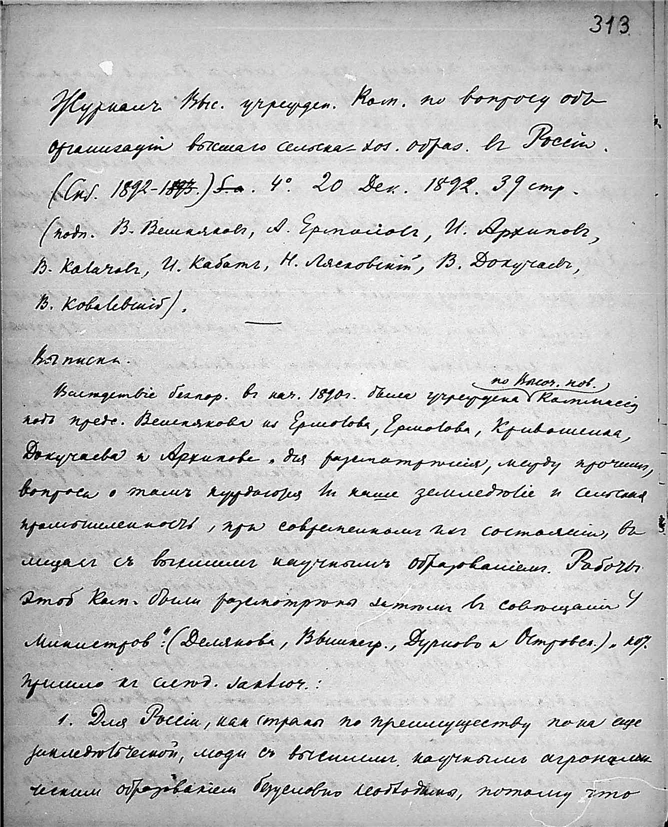 313
Журналъ Выс. учрежден. Ком. по вопросу объ
организаціи высшаго сельско-хоз. образ. въ Россіи.
(Спб. 1892-1893.) S.a. 4°. 20 Дек. 1892. 39 стр.
(подп. В. Вешняковъ, А. Ермоловъ, И. Архиповъ,
В. Ковачовъ, И. Кабатъ, Н. Лясковскій, В. Докучаевъ,
В. Ковалевскій).
Выписки
по Высоч. пов.
Вслѣдствіе въ нач. 1890г. была учреждена Коммиссія
подъ предс. Вешнякова из Ермолова, Ермолова, Кривошеина,
Докучаева и Архипова, для разсмотрѣнія, между прочимъ,
вопроса о томъ нуждаются ли наше земледѣліе и сельская
промышленность, при современномъ ихъ состояніи, въ
лицахъ съ высшимъ научнымъ образованіемъ. Работы
этой Ком. были разсмотрѣны затѣмъ въ совѣщаніи 4
Министровъ: (Делянова, Вышнегр., Дурново и Островск.),
пришло къ слѣд. заключ.:
1. Для Россіи, какъ страны по преимуществу пока еще
земледѣльческой, люди съ высшимъ научнымъ агрономи-
ческимъ образованіемъ безусловно необходимы, потому что